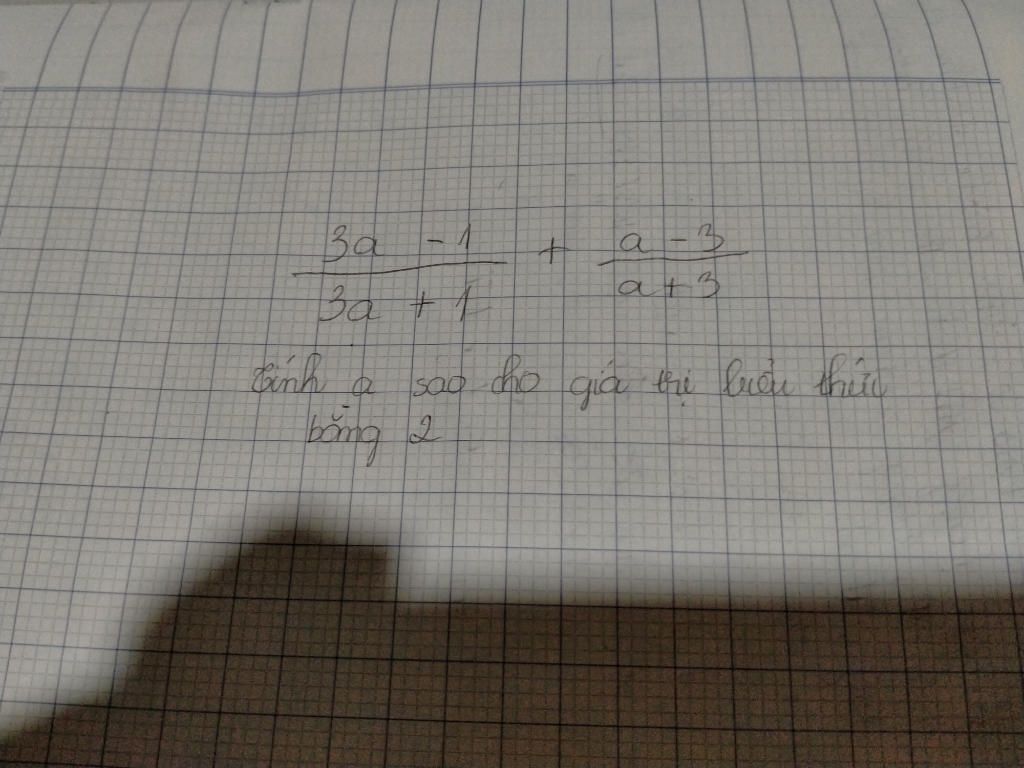 3a - 1 + a - 3
3a + 1 a + 3
tính a sao cho giá trị biểu thức
bằng 2